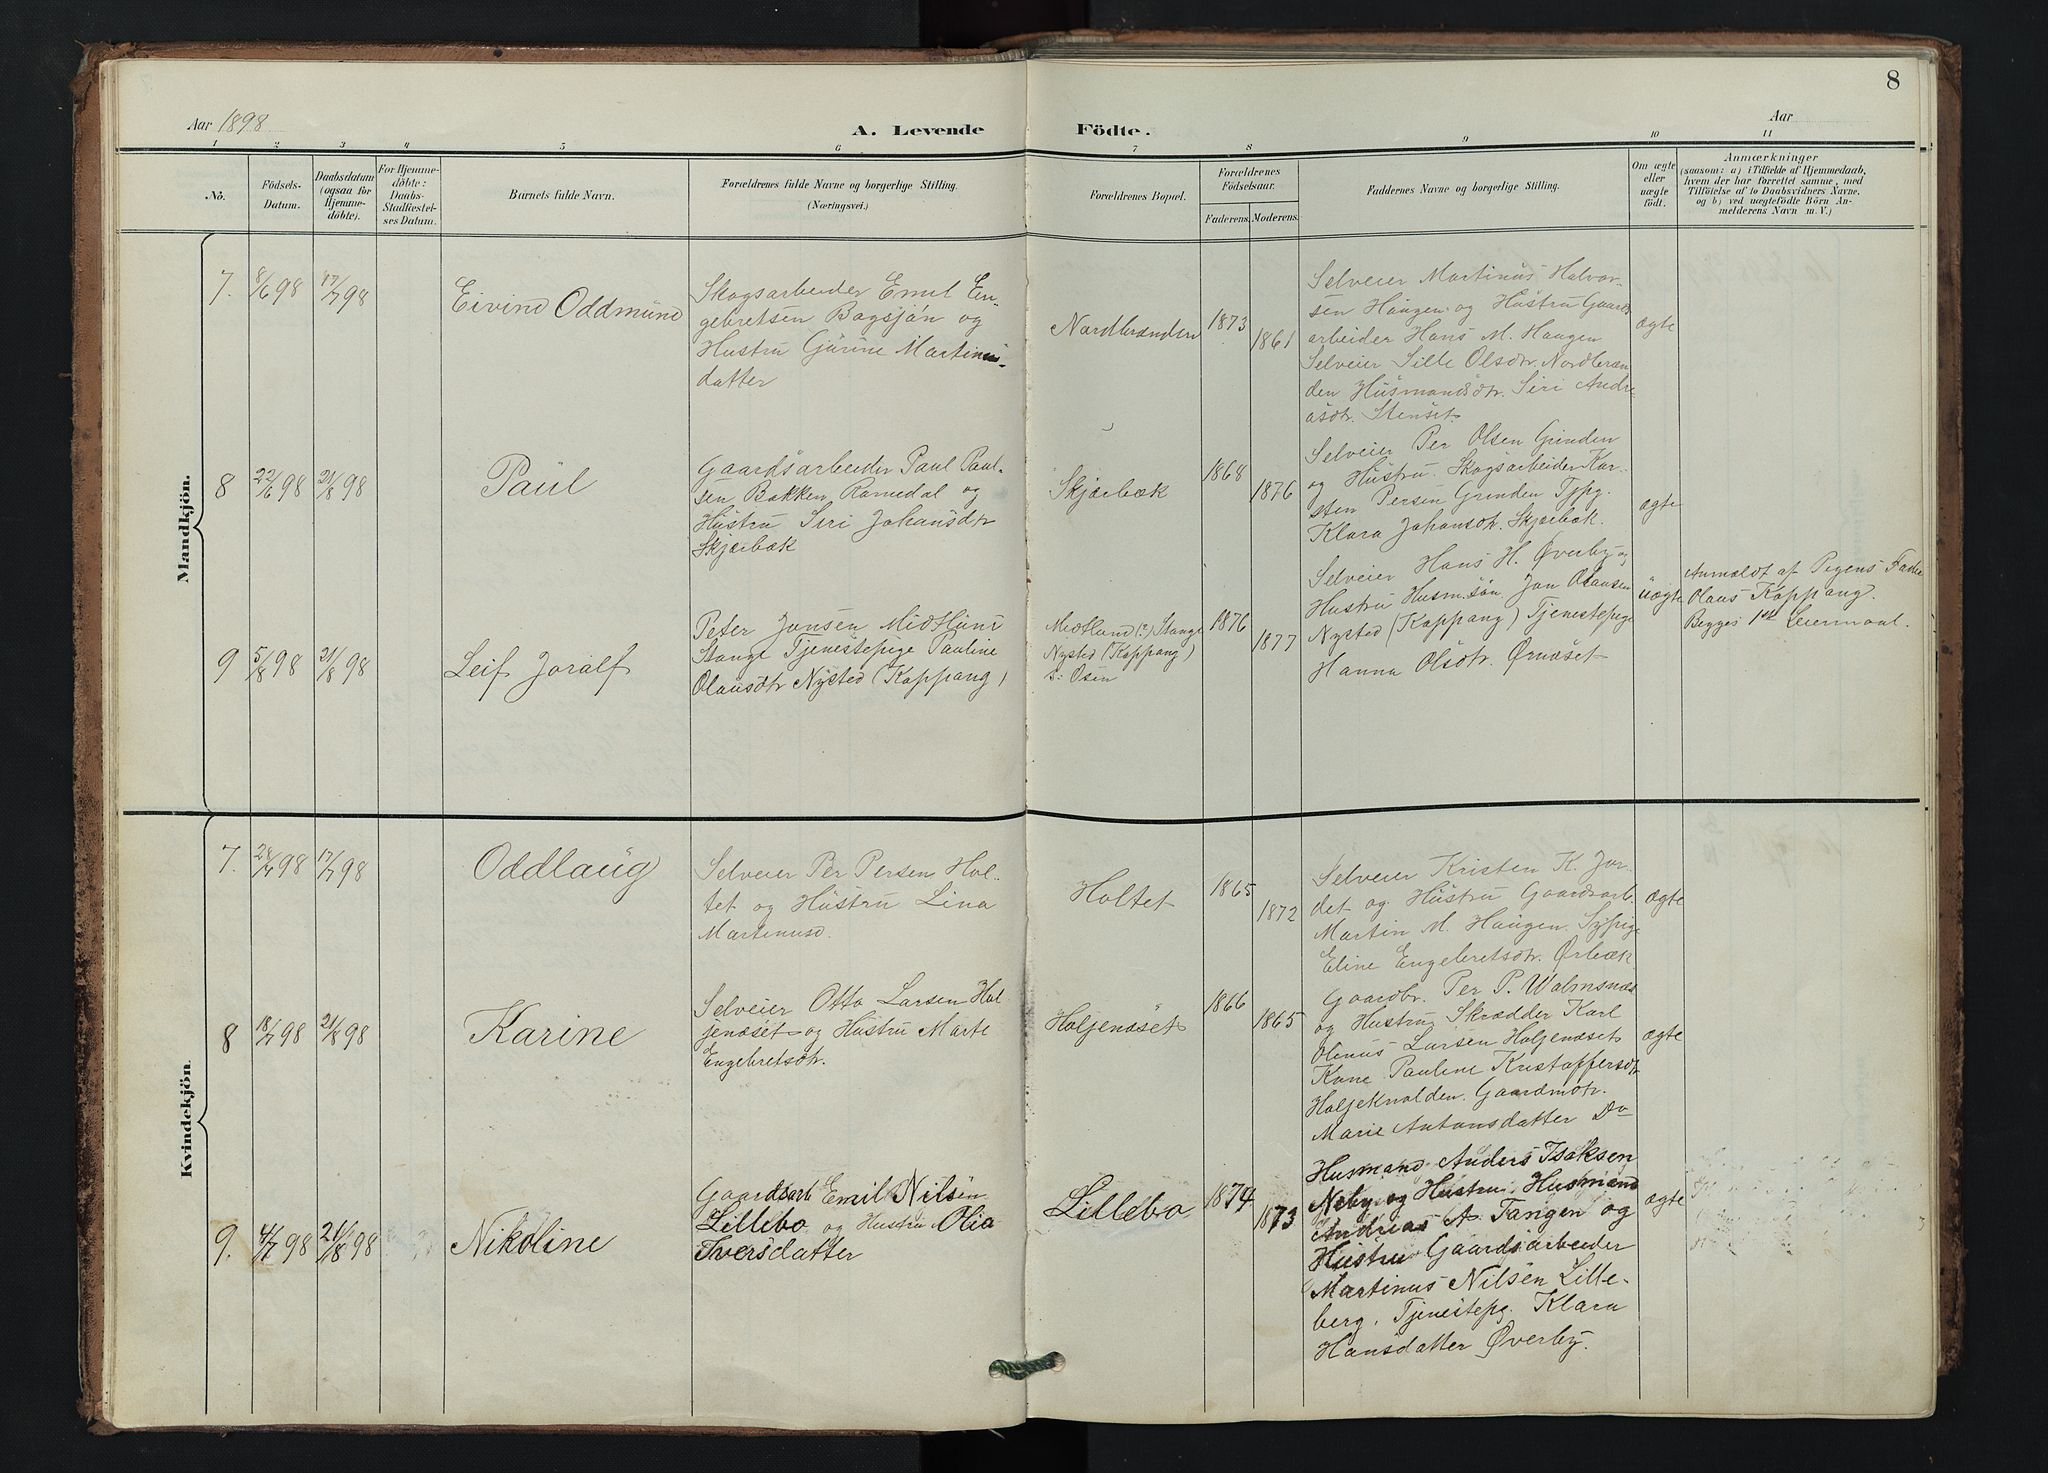 8
Aar 1898
A. Levende Födte.
Aar
1 2 3 4 5 6 7 8 9 10 11
No.
Födsels-
Datum.
Daabsdatum
(ogsaa for
Hjemme-
döbte).
For Hjemme-
döbte:
Daabs-
Stadfæstel-
ses Datum.
Barnets fulde Navn.
Forældrenes fulde Navne og borgerlige Stilling.
(Næringsvei.)
Forældrenes Bopæl.
Forældrenes
Födselsaar.
Faderens. Moderens.
Faddernes Navne og borgerlige Stilling.
Om ægte
eller
uægte
födt.
Anmærkninger
(saasom: a) i Tilfælde af Hjemmedaab,
hvem der har forrettet samme, med
Tilföielse af to Daabsvidners Navne,
og b) ved uægtefödte Börn An-
melderens Navn m. V.)
Mandkjön.
7. 8/6 98 17/7 98
Eivind Oddmund
Skogsarbeider Emil En-
gebretsen Bagsjön og
Hustru Gurine Martinus-
datter
Nordbrænden
1873
1861
Selveier Martinus Halvor-
sen Haugen og Hustru Gaards
arbeider Hans M. Haugen
Selveier Sille Olsdtr. Nordbræn
den Husmandsdtr. Siri Andre
asdtr. Stenset.
ægte
8 22/6 98 21/8 98
Paul
Gaardsarbeider Paul Paul-
sen Bakken Romedal og
Hustru Siri Johansdtr
Skjærbæk
Skjærbæk
1868
1876
Selveier Per Olsen Grinden
og Hustru. Skogsarbeider Kar-
sten Persen Grinden Tjpg.
Klara Johansdtr. Skjærbæk.
ægte
9 5/8 98 21/8 98
Leif Joralf
Peter Jansen Midtlund
Stange Tjenestepige Pauline
Olausdtr Nysted (Koppang)
Midtlund (?) Stange
Nysted (Koppang)
s: Osen
1876
1877
Selveier Hans H. Øverby og
Hustru Husm.søn Jon Olausen
Nysted (Koppang) Tjenestepige
Hanna Olsdtr. Ørnæset
uægte
Anmeldt af Pigens Fader
Olaus Koppang.
Begges 1ste Leiermaal.
Kvindekjön.
7. 98 17/7 98
Oddlaug
Selveier Per Persen Hol-
tet og Hustru Lina
Martinusd.
Holtet
1865
1872
Selveier Kristen K. Jor-
det og Hustru Gaardsarb.
Martin M. Haugen. Sypige
Eline Engebretsdtr. Ørbæk
ægte
8 18/7 98 21/8 98
Karine
Selveier Otto Larsen Hol-
jenæset og Hustru Marte
Engebretsdtr.
Holjenæset
1866
1865
Gaardbr. Per P. Valmsnæs
og Hustru Skrædder Karl
Olinus Larsen Holjenæset
Kone Pauline Kristoffersdtr
Holjeknolden. Gaardmdtr.
Marie Antonsdatter Do
ægte
9. 4/7 98 21/8 98
Nikoline
Gaardsarb Emil Nilsen
Lillebo og Hustru Olia
Iversdatter
Lillebo
1874
1873
Husmand Anders Isaksen
Neby og Hustru. Husmand
Andreas A. Tangen og
Hustru Gaardsarbeider
Martinus Nilsen Lille-
berg. Tjenestepg. Klara
Hansdatter Øverby.
ægte